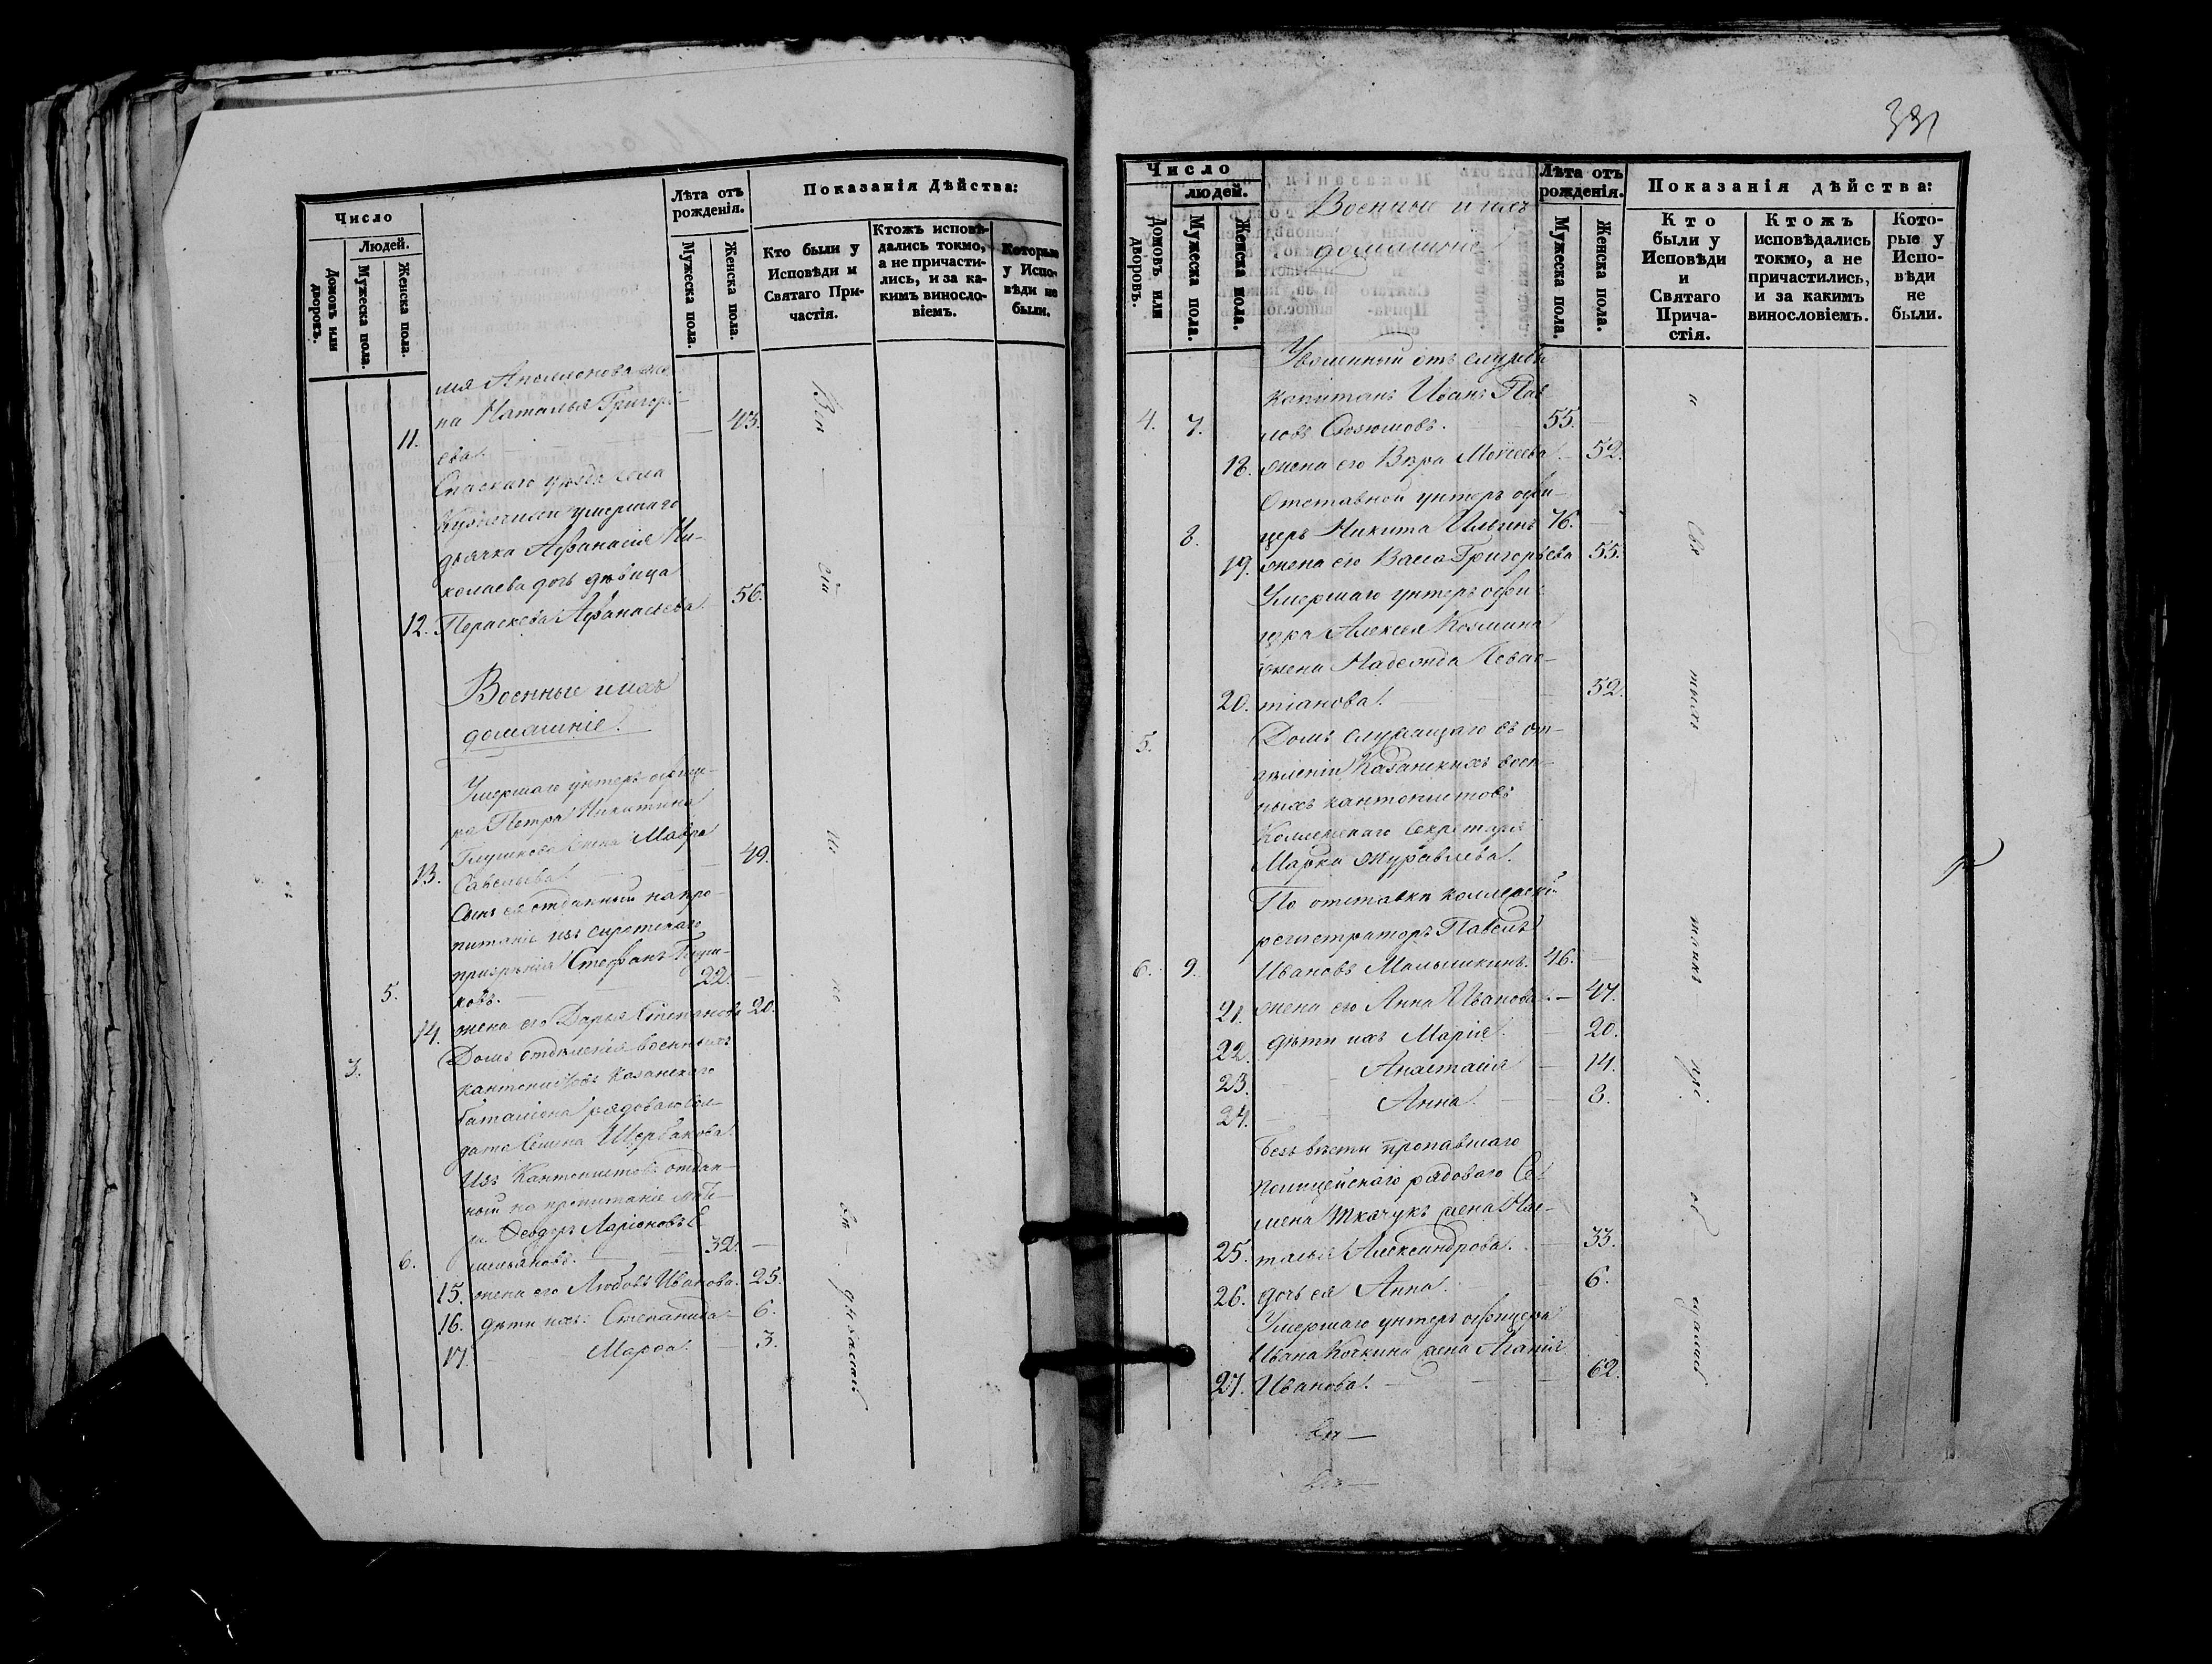 Число
Людей.
Домовъ или дворовъ.
Мужеска пола.
Женска пола.
Лѣта отъ рожденія.
Мужеска пола.
Женска пола.
Показанія Дѣйства:
Кто были у Исповѣди и Святаго При-
частія.
Ктожъ исповѣ-
дались токмо,
а не причасти-
лись, и за ка-
кимъ виносло-
віемъ.
Которые
у Испо-
вѣди не
были.
на Наталья Григорь-
11. ева. — 43.
Спаскаго уѣзда села
умершаго
дьячка Афанасія Ни-
колаева дочь дѣвица
12. Параскева Афанасьева. 56.
Военные и ихъ
домашніе.
Умершаго унтеръ-офице-
ра Петра Никитина
Глушкова жена Мавра
13. Савельева. — 49.
Сынъ ея отданный на про-
питаніе изъ сиротскаго
призрѣнія Стефанъ Глуш-
5. ковъ. — 22. —
14. жена его Дарья Степанова 20.
3. Домъ отдѣленія военныхъ
кантонистовъ Казанскаго
баталіона рядоваго сол-
дата Семена Щербакова.
Изъ Кантонистовъ отдан-
ный на пропитаніе мате-
ри Феодоръ Ларіоновъ Е-
6. мельяновъ. — 32. —
15. жена его Любовь Иванова. 25.
16. дѣти ихъ: Степанида — 6.
17. — Марѳа. — 3.
331
Число
людей.
Домовъ или дворовъ.
Мужеска пола.
Женска пола.
Военные и ихъ
домашніе.
Лѣта отъ
рожденія.
Мужеска пола.
Женска пола.
Показанія дѣйства:
Кто
были у
Исповѣди
и
Святаго
Прича-
стія.
Ктожъ
исповѣдались
токмо, а не
причастились,
и за какимъ
винословіемъ.
Кото-
рые у
Испо-
вѣди
не
были.
Уволенный отъ службы
капитанъ Иванъ Пав-
4. 7. ловъ 55. —
18. жена его Вѣра Моисеева. — 52.
Отставной унтеръ офи-
8. церъ Никита Ильинъ 76. —
19. жена его Васса Григорьева 55.
Умершаго унтеръ офи-
цера Алексея Козмина
жена Надежда Севас-
20. тіанова. — 52.
5. Домъ служащаго въ от-
дѣленіи Казанскихъ воен-
ныхъ кантонистовъ
Коллежскаго Секретаря
Марка Журавлева.
По отставкѣ коллежскій
регистраторъ Павелъ
6. 9. Ивановъ Малышкинъ. 46. —
21. жена его Анна Иванова. — 47.
22. дѣти ихъ Марія. — 20.
23. Анастасія — 14.
24. Анна. — 8.
Безъ вѣсти пропавшаго
полицейскаго рядоваго Се-
мена Ткачукъ жена На-
25. талья Александрова. — 33.
26. дочь ея Анна. — 6.
Умершаго унтеръ офицера
Ивана Кочкина жена Агапія
27. Иванова. — 62.